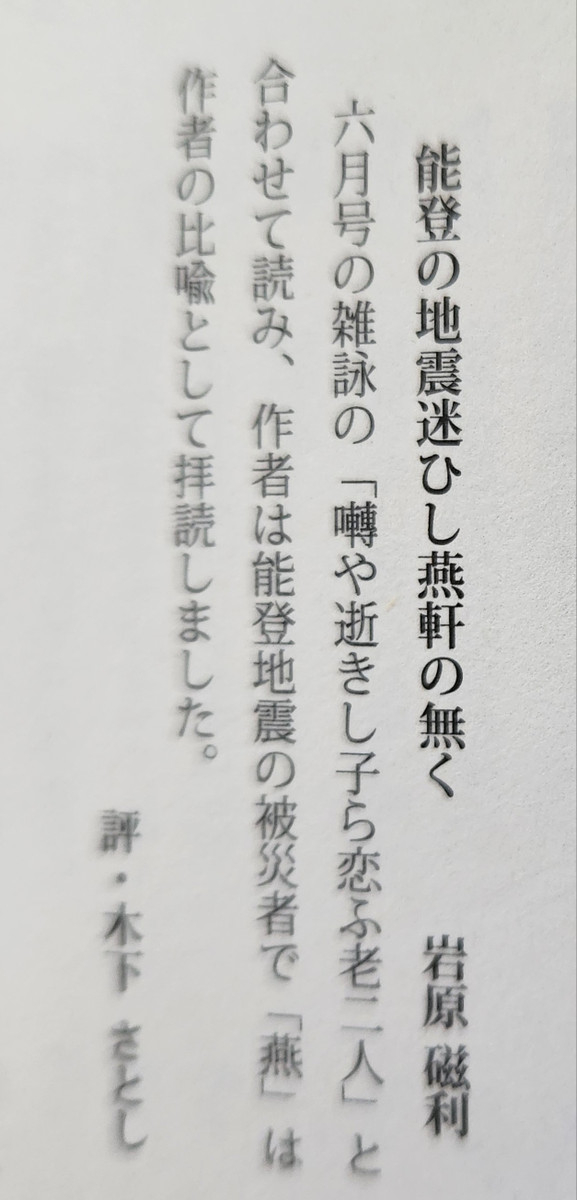 能登の地震迷ひし燕軒の無く　岩原 磁利
六月号の雑詠の「囀や逝きし子ら恋ふ老二人」と
合わせて読み、作者は能登地震の被災者で「燕」は
作者の比喩として拝読しました。
評・木下 さとし